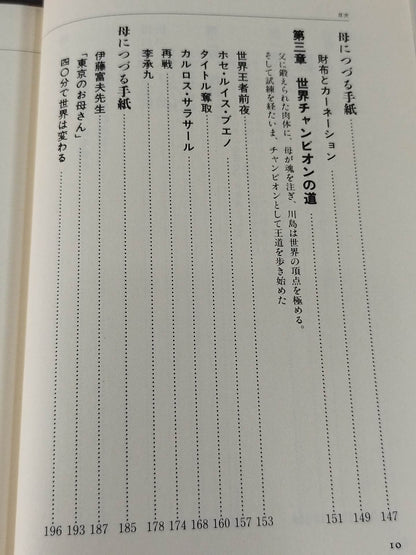 目次
母につづる手紙 147
財布とカーネーション 149
第三章 世界チャンピオンの道 151
父に鍛えられた肉体に、母が魂を注ぎ、川島は世界の頂点を極める。
そして試練を経たいま、チャンピオンとして王道を歩き始めた
世界王者前夜 153
ホセ・ルイス・ブエノ 157
タイトル奪取 160
カルロス・サラサール 168
再戦 174
李承九 178
母につづる手紙 185
伊藤富夫先生 187
「東京のお母さん」 193
四〇分で世界は変わる 196
10